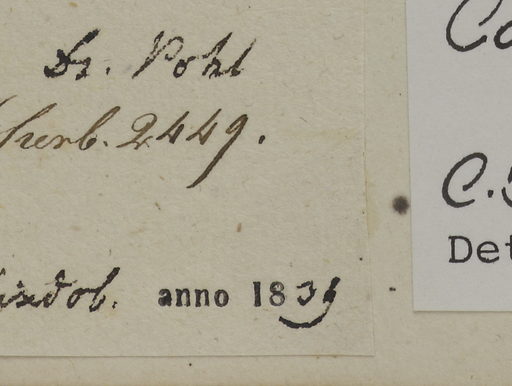 Dr. Pohl
herb. 2449.
Vindob. anno 1839
Det